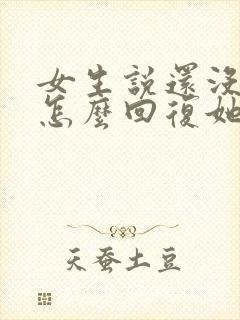 女生説還沒
怎麼回復她
天蚕土豆